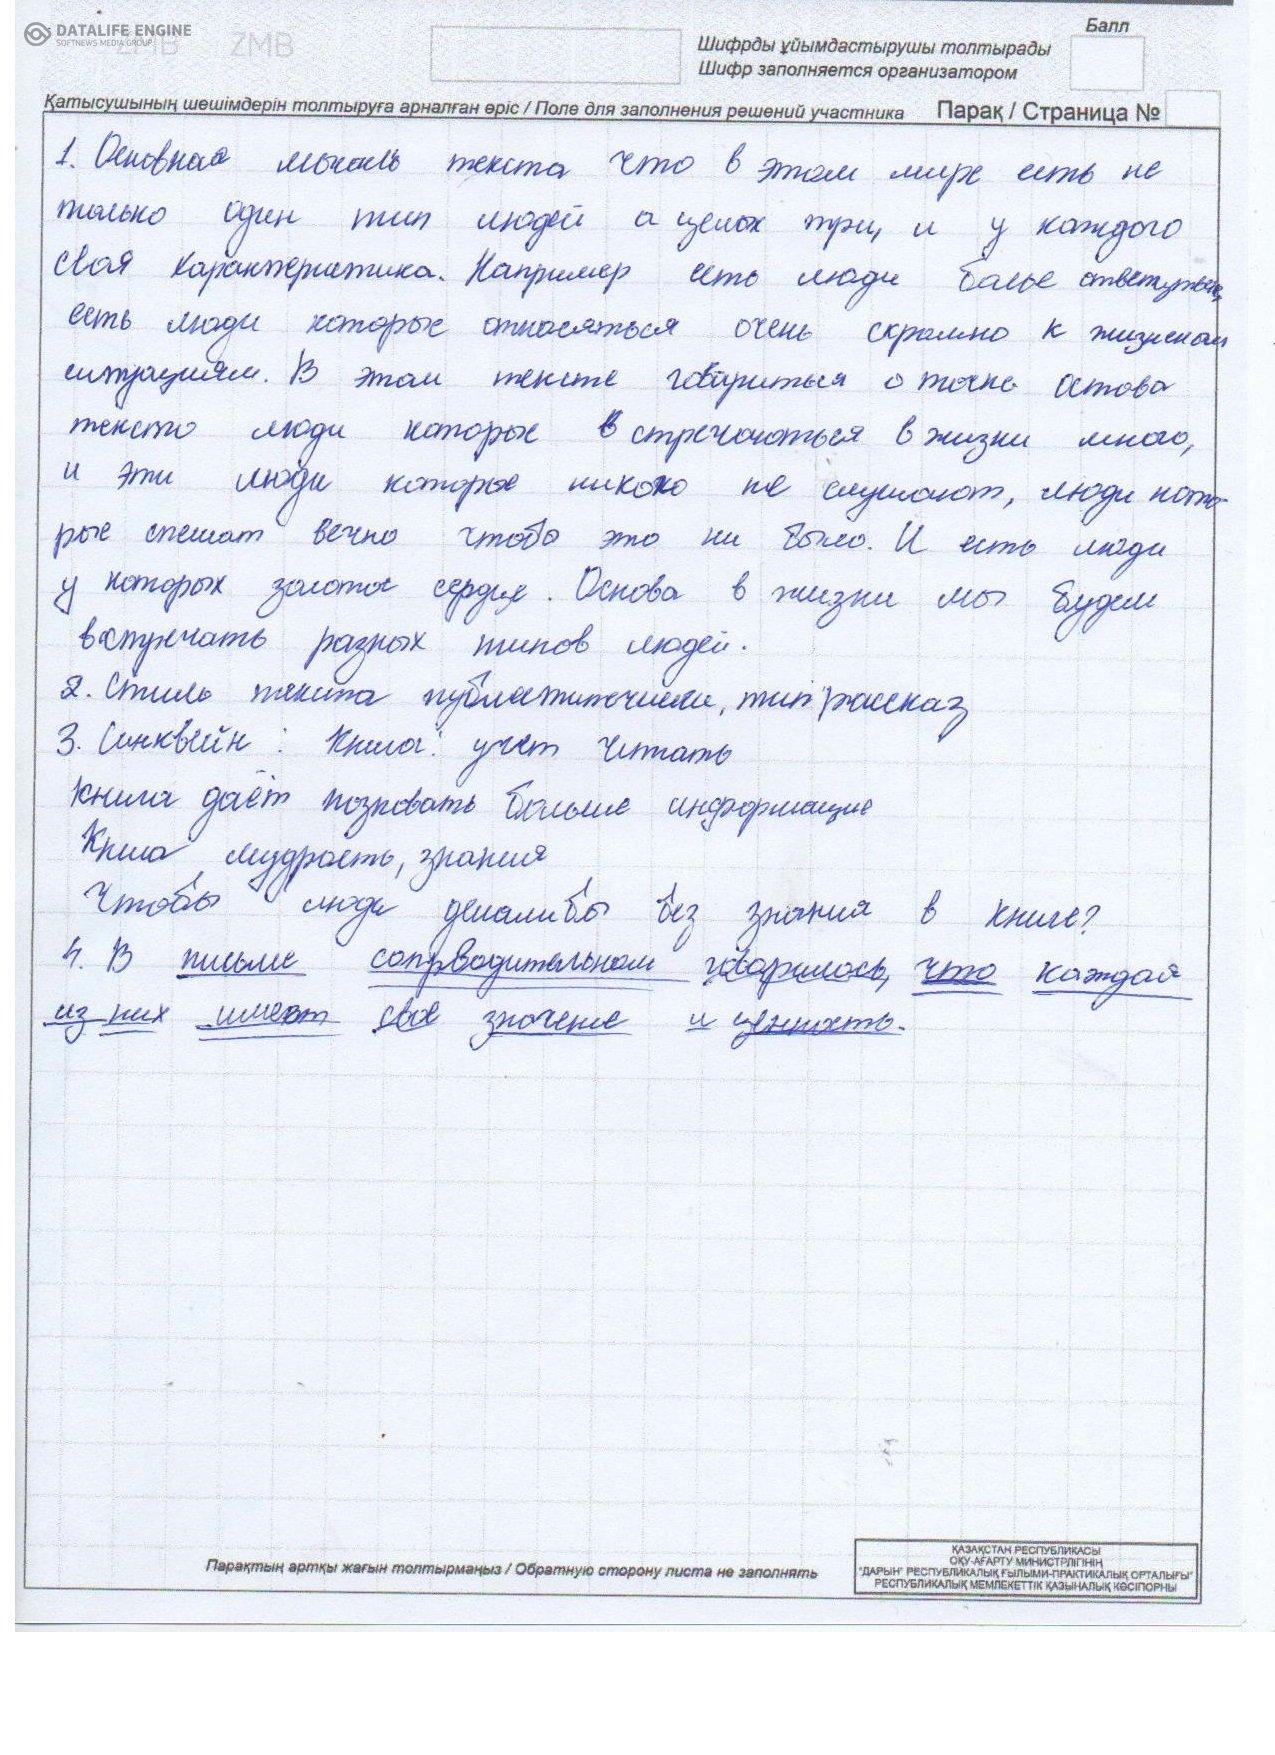 DATALIFE ENGINE
SOFTNEWS MEDIA GROUP
ZMB ZMB
Балл
Шифрды ұйымдастырушы толтырады
Шифр заполняется организатором
Қатысушының шешімдерін толтыруға арналған өріс / Поле для заполнения решений участника Парақ / Страница №
1. Основная мысаль текста что в этом мире есть не
только один тип людей а целых три, и у каждого
своя характеристика. Например есть люди более
есть люди которые относяться очень скромно к жизненым
ситуациям. В этом тексте говориться о точно остова
текста люди которые встречаються в жизни много,
и эти люди которые никого не слушают, люди кото-
рые спешат вечно чтобо это ни было. И есть люди
у которых золотое сердце. Основа в жизни мы будем
встречать разных типов людей.
2. Стиль текста тип рассказ
3. Синквейн: Книга: учет читать
Книга даёт познавать больше информацие
Книга мудрость, знания
Чтобы люди делалибы без знания в книге?
4. В письме сопрводительном говорилось, что каждая
из них имеет свое значение и ценность.
Парақтың артқы жағын толтырмаңыз / Обратную сторону листа не заполнять
ҚАЗАҚСТАН РЕСПУБЛИКАСЫ
ОҚУ-АҒАРТУ МИНИСТРЛІГІНІҢ
"ДАРЫН" РЕСПУБЛИКАЛЫҚ ҒЫЛЫМИ-ПРАКТИКАЛЫҚ ОРТАЛЫҒЫ"
РЕСПУБЛИКАЛЫҚ МЕМЛЕКЕТТІК ҚАЗЫНАЛЫҚ КӘСІПОРНЫ